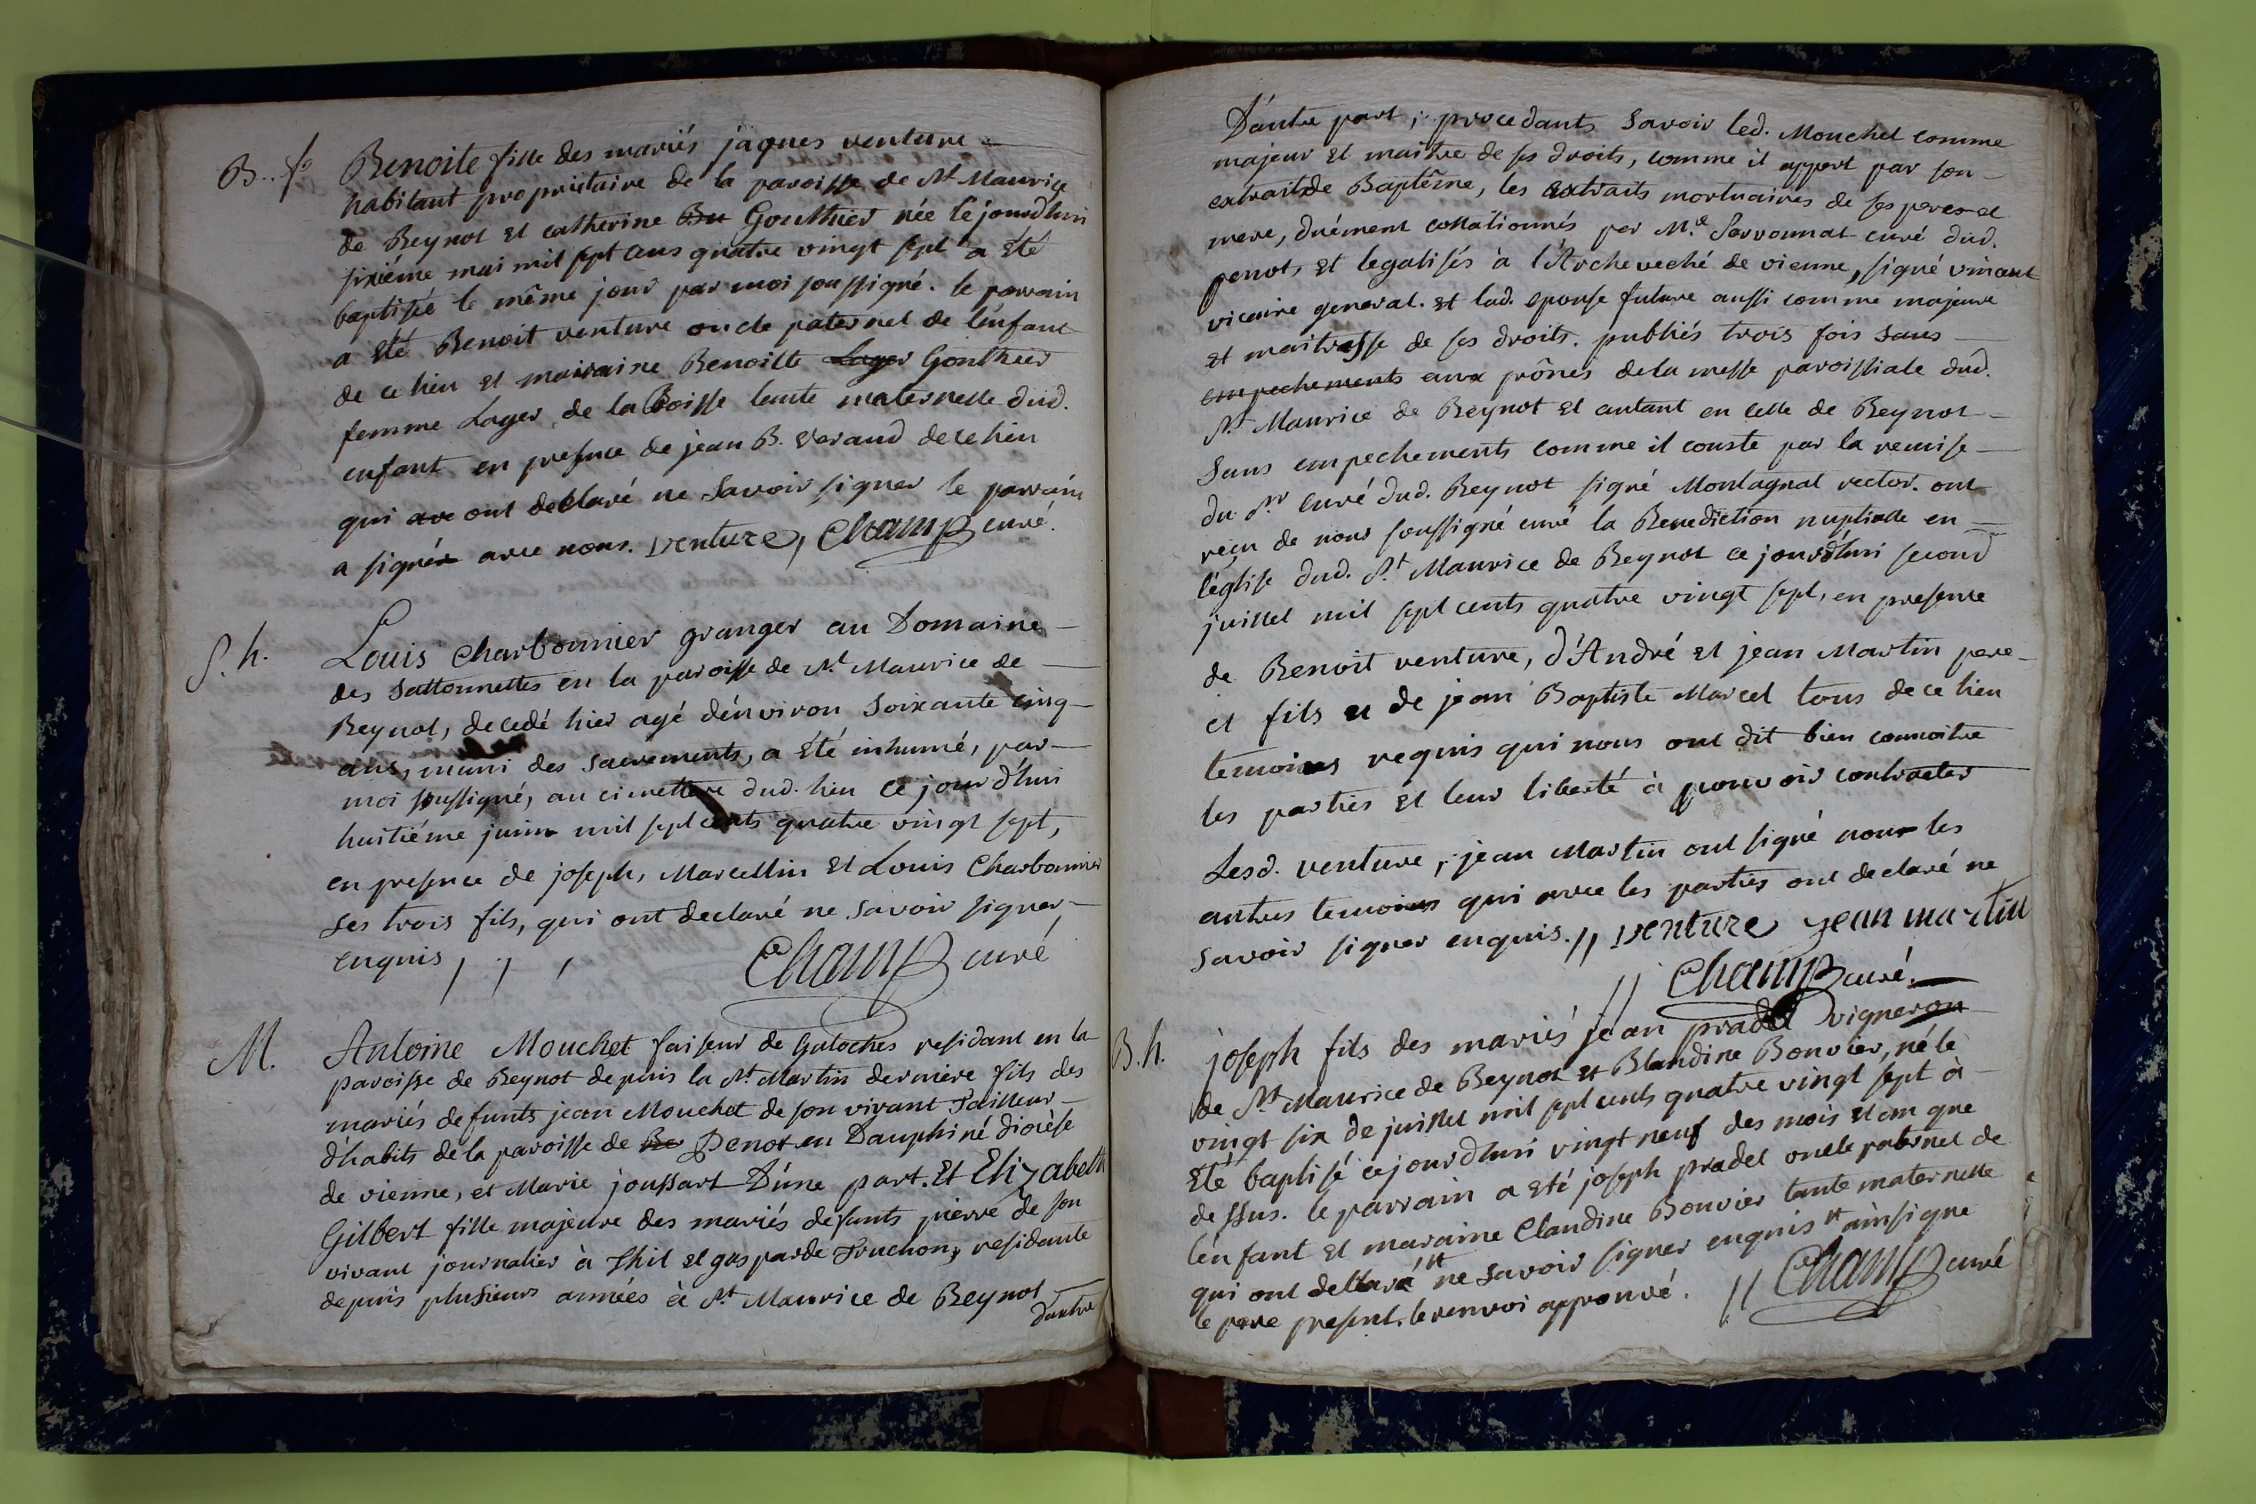 B. fe
Benoite fille des mariés jaques venture
habitant proprietaire de la paroisse de St Maurice
de Beynot et catherine Bu Gouthier née le jourdhui
sixiéme mai mil sept cens quatre vingt sept a été
baptisée le même jour par moi soussigné. le parrain
a été Benoit venture oncle paternel de l'enfant
de ce lieu et mairaine Benoitte Lager Gonthier
femme Lager, de la Boisse tante maternelle dud.
enfant en presence de jean B. Veraud de ce lieu
qui ave ont declaré ne Savoir signer le parrain
a signé avec nous. venture, Champ curé.
S. h.
Louis Charbonnier granger au Domaine
des Sattonnettes en la paroisse de St Maurice de
Beynot, decedé hier agé d'environ Soixante cinq
ans, muni des Sacrements, a été inhumé, par
moi soussigné, au cimettere dud. lieu ce jourd'hui
huitiéme juin mil sept cents quatre vingt sept,
en presence de joseph, Marcellin et Louis Charbonnier
ses trois fils, qui ont declaré ne savoir signer
enquis
Champ curé
M.
Antoine Mouchet faiseur de Galoches residant en la
paroisse de Beynot depuis la St Martin derniere fils des
mariés defunts jean Mouchet de son vivant Tailleur
d'habits de la paroisse de Be Penot en Dauphiné diocèse
de vienne, et Marie joussart D'une part. Et Elizabeth
Gilbert fille majeure des mariés defunts pierre de son
vivant journalier à Thil et gasparde Truchon, residante
depuis plusieurs années à St Maurice de Beynot
d'autre
D'autre part, procedants Savoir led. Mouchet comme
majeur et maitre de ses droits, comme il appert par son
extrait de Baptême, les extraits mortuaires de ses peres et
mere, duément collationnés par Mre Servonnat curé dud.
penot, et legalisés à l'Archeveché de vienne, signé vincent
vicaire general. et lad. epouse future aussi comme majeure
et maitresse de ses droits. publiés trois fois sans
empechements aux prônes de la messe paroissiale dud.
St Maurice de Beynot et autant en celle de Beynot
Sans empechements comme il conste par la remise
du Sr curé dud. Beynot signé Montagnat rector. ont
reçu de nous soussigné curé la Benediction nuptiale en
l'église dud. St Maurice de Beynot ce jourd'hui second
juillet mil sept cents quatre vingt sept, en presence
de Benoit venture, d'André et jean Martin pere
et fils et de jean Baptiste Marcel tous de ce lieu
temoins requis qui nous ont dit bien connoitre
les parties et leur liberté à pouvoir contracter
Lesd. venture, jean Martin ont signé non les
autres temoins qui avec les parties ont declaré ne
savoir signer enquis. // venture jean martin
// Champ curé.
B. h.
joseph fils des mariés jean pradel vigneron
de St Maurice de Beynot et Blandine Bonvier, né le
vingt six de juillet mil sept cents quatre vingt sept à
été baptisé cejourd'hui vingt neuf des mois et an que
dessus. le parrain a été joseph pradel oncle paternel de
l'enfant et maraine Claudine Bonvier tante maternelle
qui ont declaré ne savoir signer enquis ainsi que
le pere present. le renvoi approuvé. // Champ curé